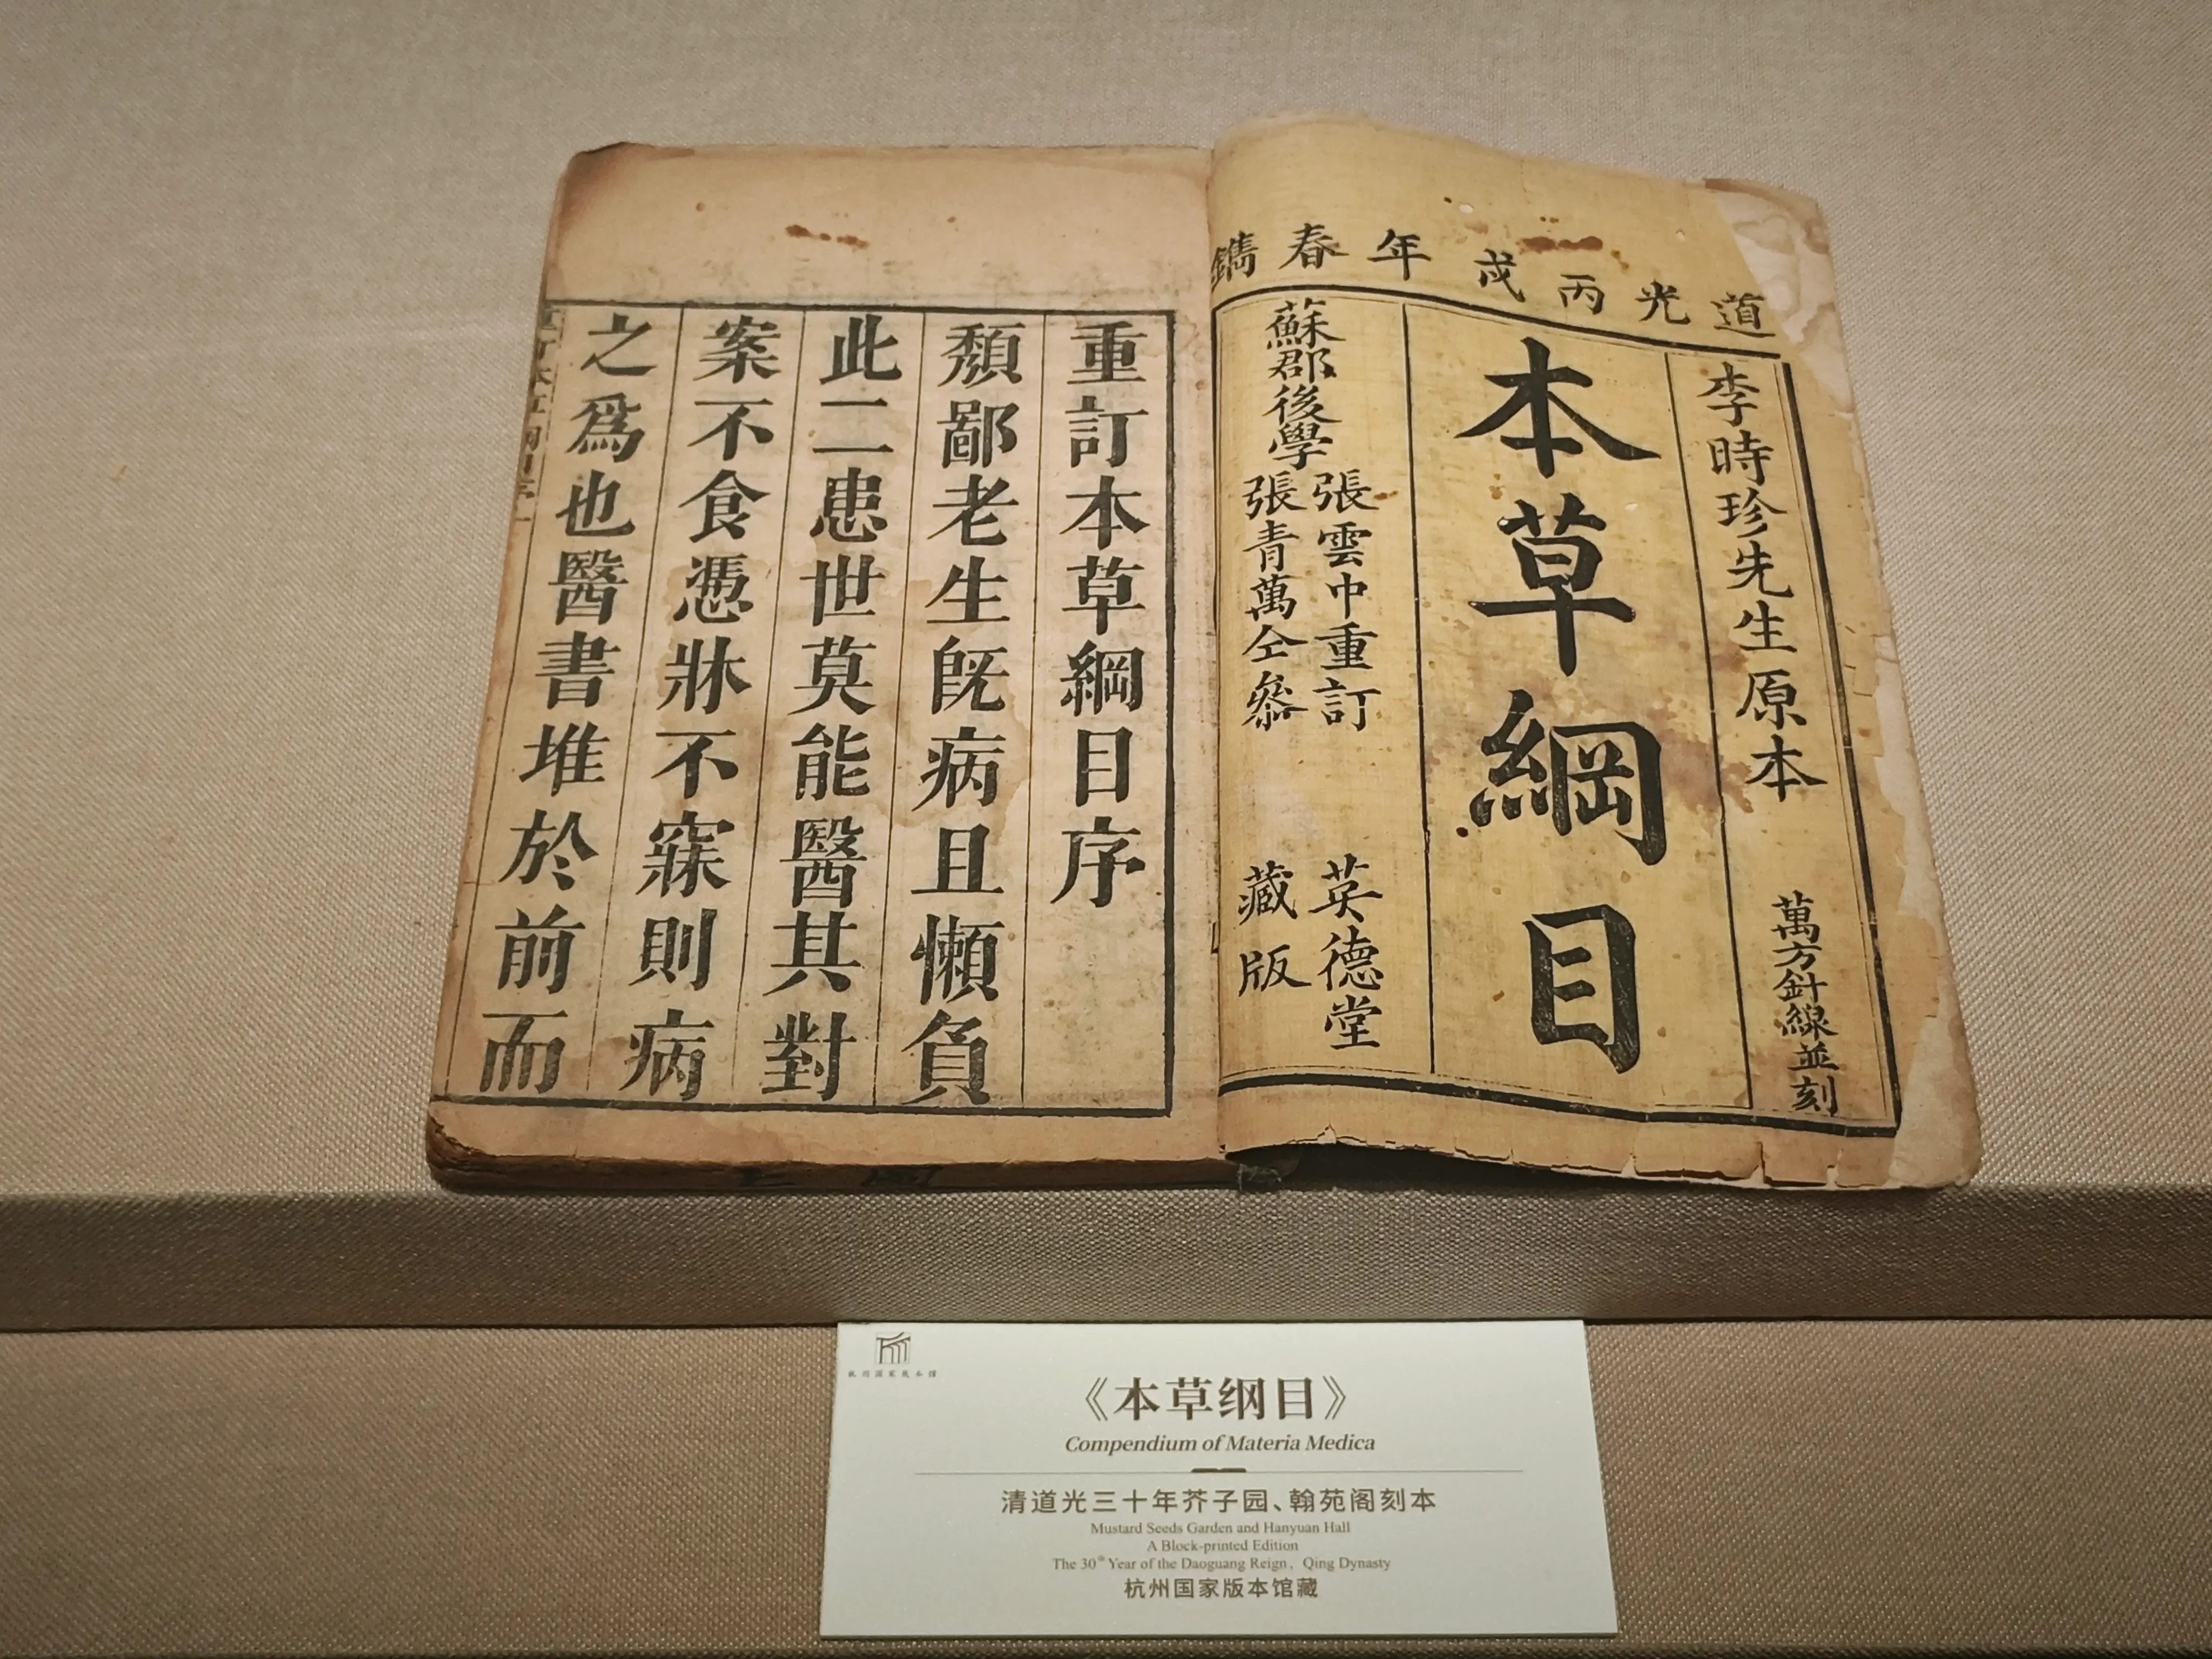 道光丙戌年春鐫
李時珍先生原本
萬方針線並刻
本草綱目
蘇郡後學
張雲中重訂
張青萬仝叅
英德堂
藏版
重訂本草綱目序
頽鄙老生旣病且懶負
此二患世莫能醫其對
案不食憑牀不寐則病
之爲也醫書堆於前而
杭州国家版本馆
《本草纲目》
Compendium of Materia Medica
清道光三十年芥子园、翰苑阁刻本
Mustard Seeds Garden and Hanyuan Hall
A Block-printed Edition
The 30th Year of the Daoguang Reign, Qing Dynasty
杭州国家版本馆藏